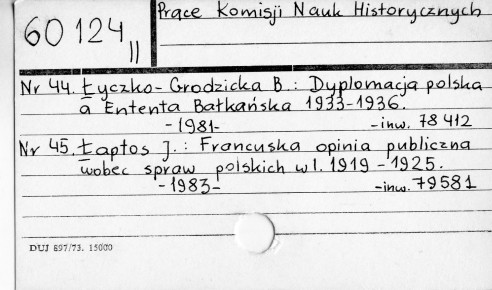 60124 II
Prace Komisji Nauk Historycznych
Nr 44. Łyczko-Grodzicka B.: Dyplomacja polska
a Ententa Bałkańska 1933-1936.
-1981- -inw. 78 412
Nr 45. Łaptos J.: Francuska opinia publiczna
wobec spraw polskich w l. 1919-1925.
-1983- -inw. 79581
DUJ 897/73. 15000